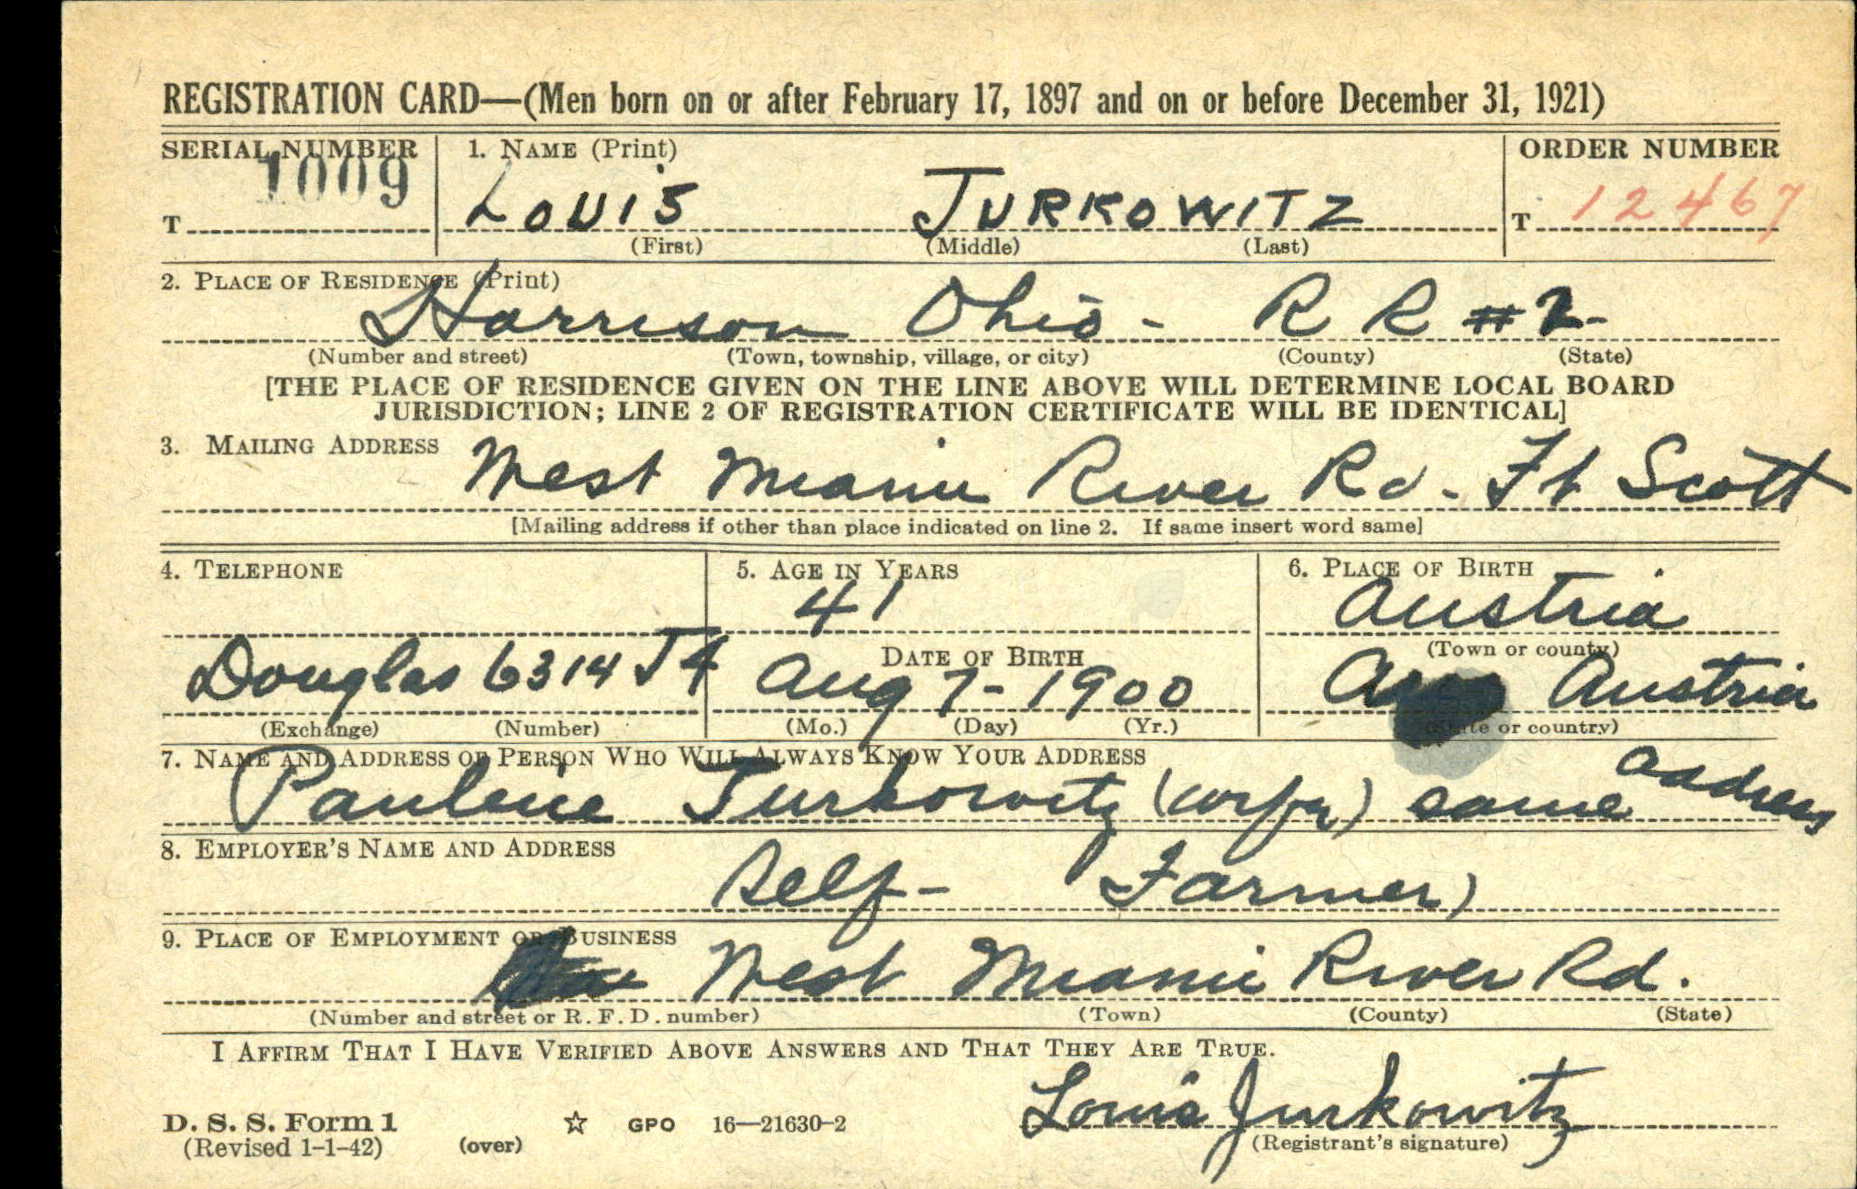 REGISTRATION CARD—(Men born on or after February 17, 1897 and on or before December 31, 1921)
SERIAL NUMBER 1. NAME (Print) ORDER NUMBER
T 1009 LOUIS JURKOWITZ T 12467
(First) (Middle) (Last)
2. PLACE OF RESIDENCE (Print)
Harrison Ohio - R R #2-
(Number and street) (Town, township, village, or city) (County) (State)
[THE PLACE OF RESIDENCE GIVEN ON THE LINE ABOVE WILL DETERMINE LOCAL BOARD
JURISDICTION; LINE 2 OF REGISTRATION CERTIFICATE WILL BE IDENTICAL]
3. MAILING ADDRESS
West Miami River Rd. Ft Scott
[Mailing address if other than place indicated on line 2. If same insert word same]
4. TELEPHONE 5. AGE IN YEARS 6. PLACE OF BIRTH
41 Austria
DATE OF BIRTH (Town or county)
Douglas 6314 J 4 Aug 7-1900 Austria
(Exchange) (Number) (Mo.) (Day) (Yr.) (State or country)
7. NAME AND ADDRESS OF PERSON WHO WILL ALWAYS KNOW YOUR ADDRESS
Pauline Jurkowitz (wife) same address
8. EMPLOYER'S NAME AND ADDRESS
Self - Farmer)
9. PLACE OF EMPLOYMENT OR BUSINESS
West Miami River Rd.
(Number and street or R. F. D. number) (Town) (County) (State)
I AFFIRM THAT I HAVE VERIFIED ABOVE ANSWERS AND THAT THEY ARE TRUE.
Louis Jurkowitz
D. S. S. Form 1 ☆ GPO 16—21630-2
(Revised 1-1-42) (over) (Registrant's signature)